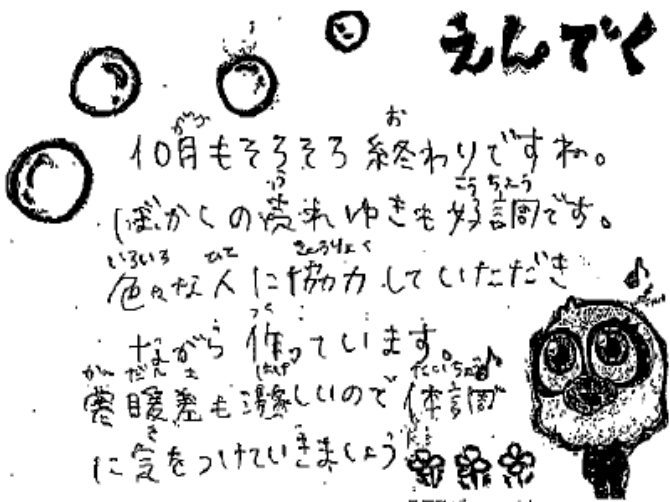 えんでく
10月もそろそろ終わりですね。
ぼかしの売れゆきも好調です。
色々な人に協力していただき
ながら作っています。
寒暖差も激しいので体調
に気をつけていきましょう